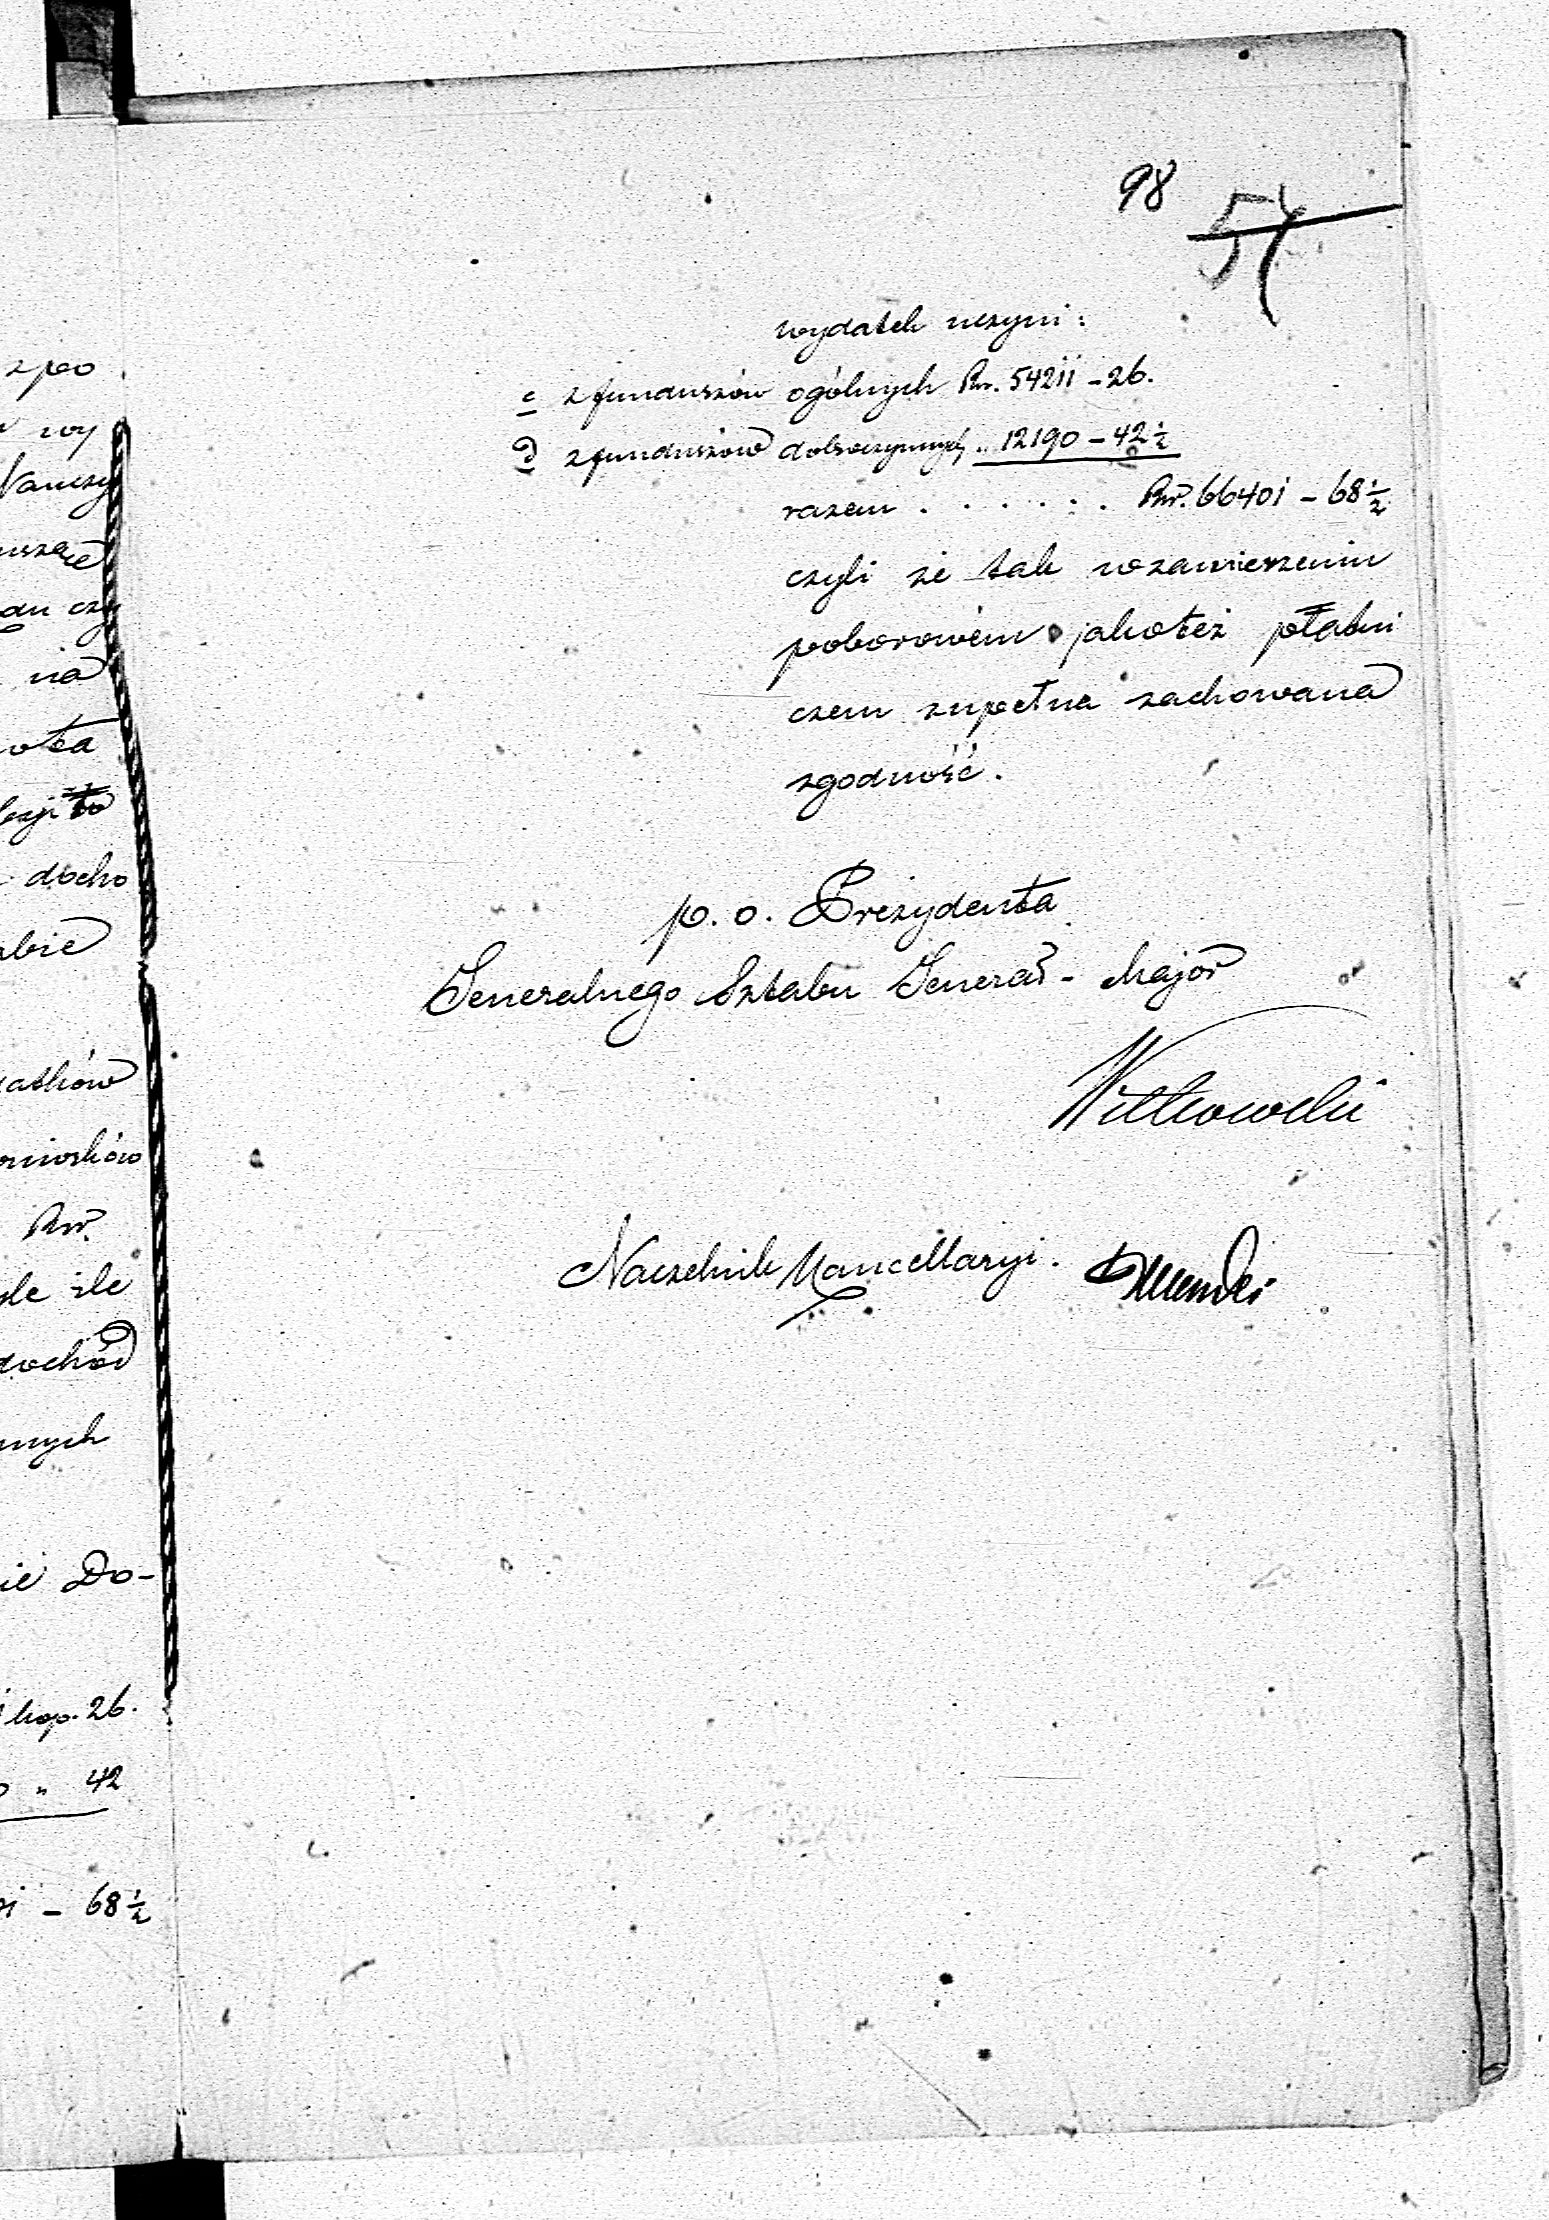 98
54
wydatek uczyni:
c z funduszów ogólnych Rsr. 54211 - 26.
d z funduszów dobroczynnych „ 12190 - 42 ½
razem . . . . . . Rsr. 66401 - 68 ½
czyli że tak w zawierzeniu
poborowém jakoteż płatni
czem zupełna zachowana
zgodność.
p. o. Prezydenta
Generalnego Sztabu Generał - Major
Witkowski
Naczelnik Kancellaryi.
z po
wy
na
docho
Rsr.
ile
dochód
Do-
kop. 26.
„ 42
- 68 ½